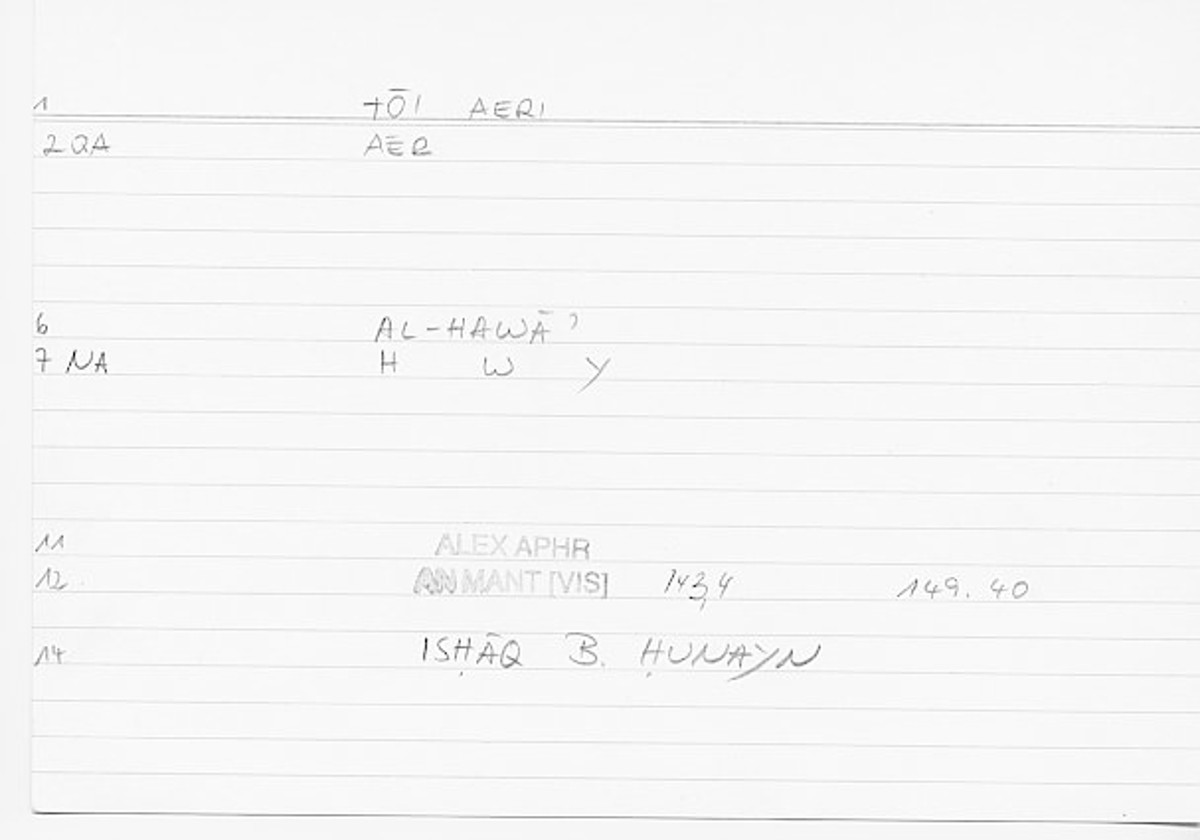 1 TŌI AERI
2 QA AĒR
6 AL-HAWĀʾ
7 NA H W Y
11 ALEX APHR
12 AN MANT [VIS] 143,4 149.40
14 ISḤĀQ B. ḤUNAYN